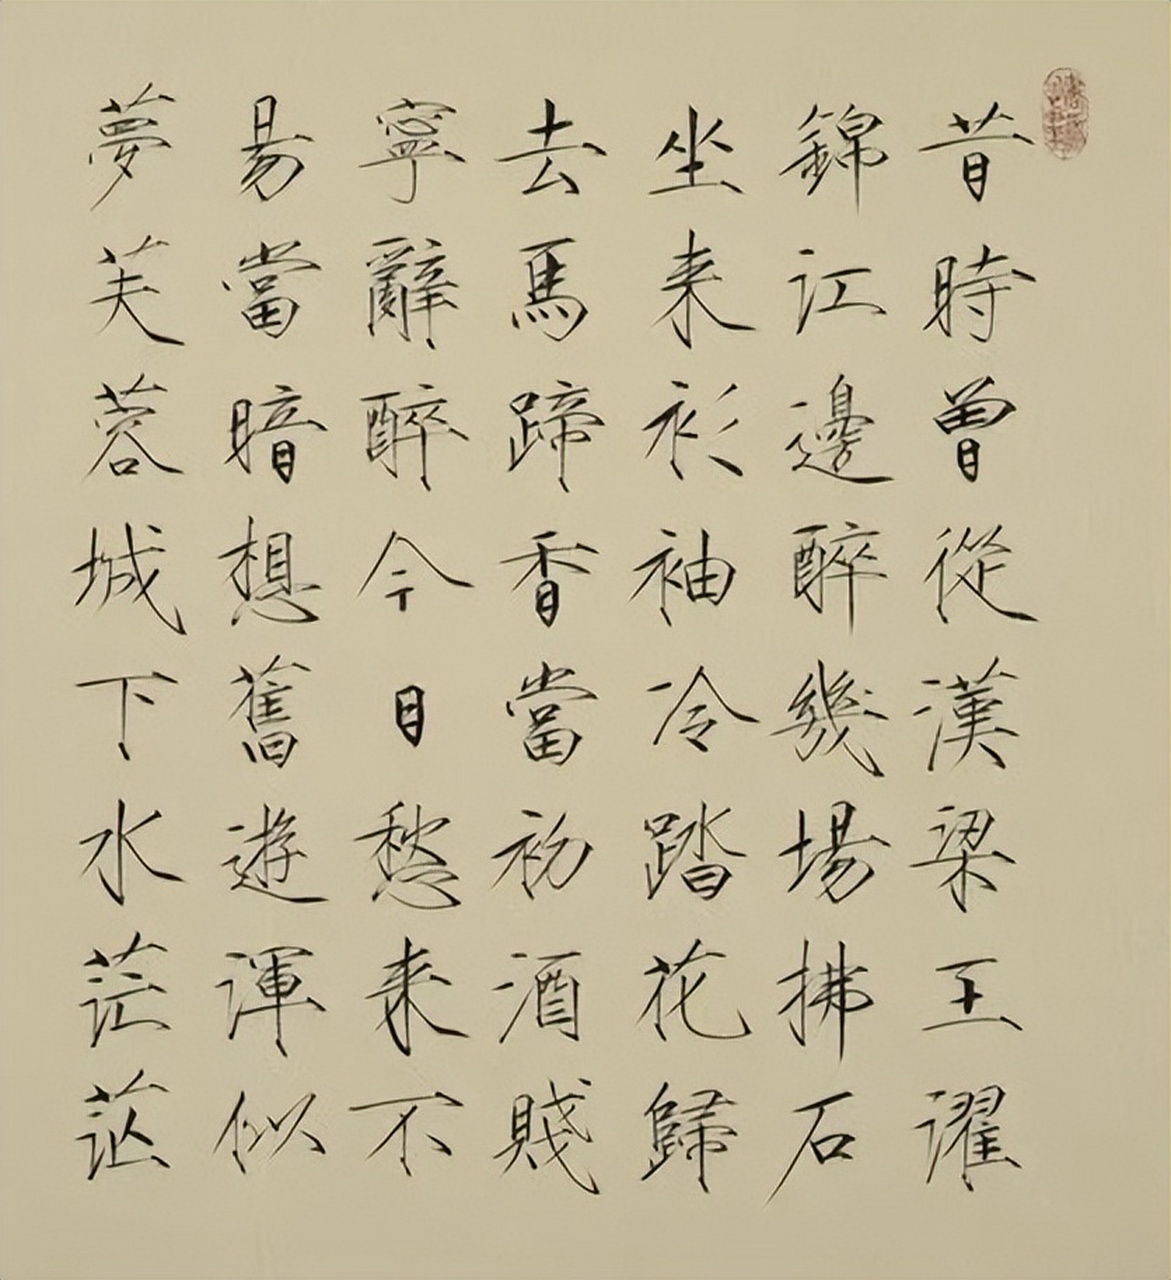 昔時曾從漢梁王濯
錦江邊醉幾場拂石
坐来衫袖冷踏花歸
去馬蹄香當初酒賤
寧辭醉今日愁来不
易當暗想舊遊渾似
夢芙蓉城下水茫茫